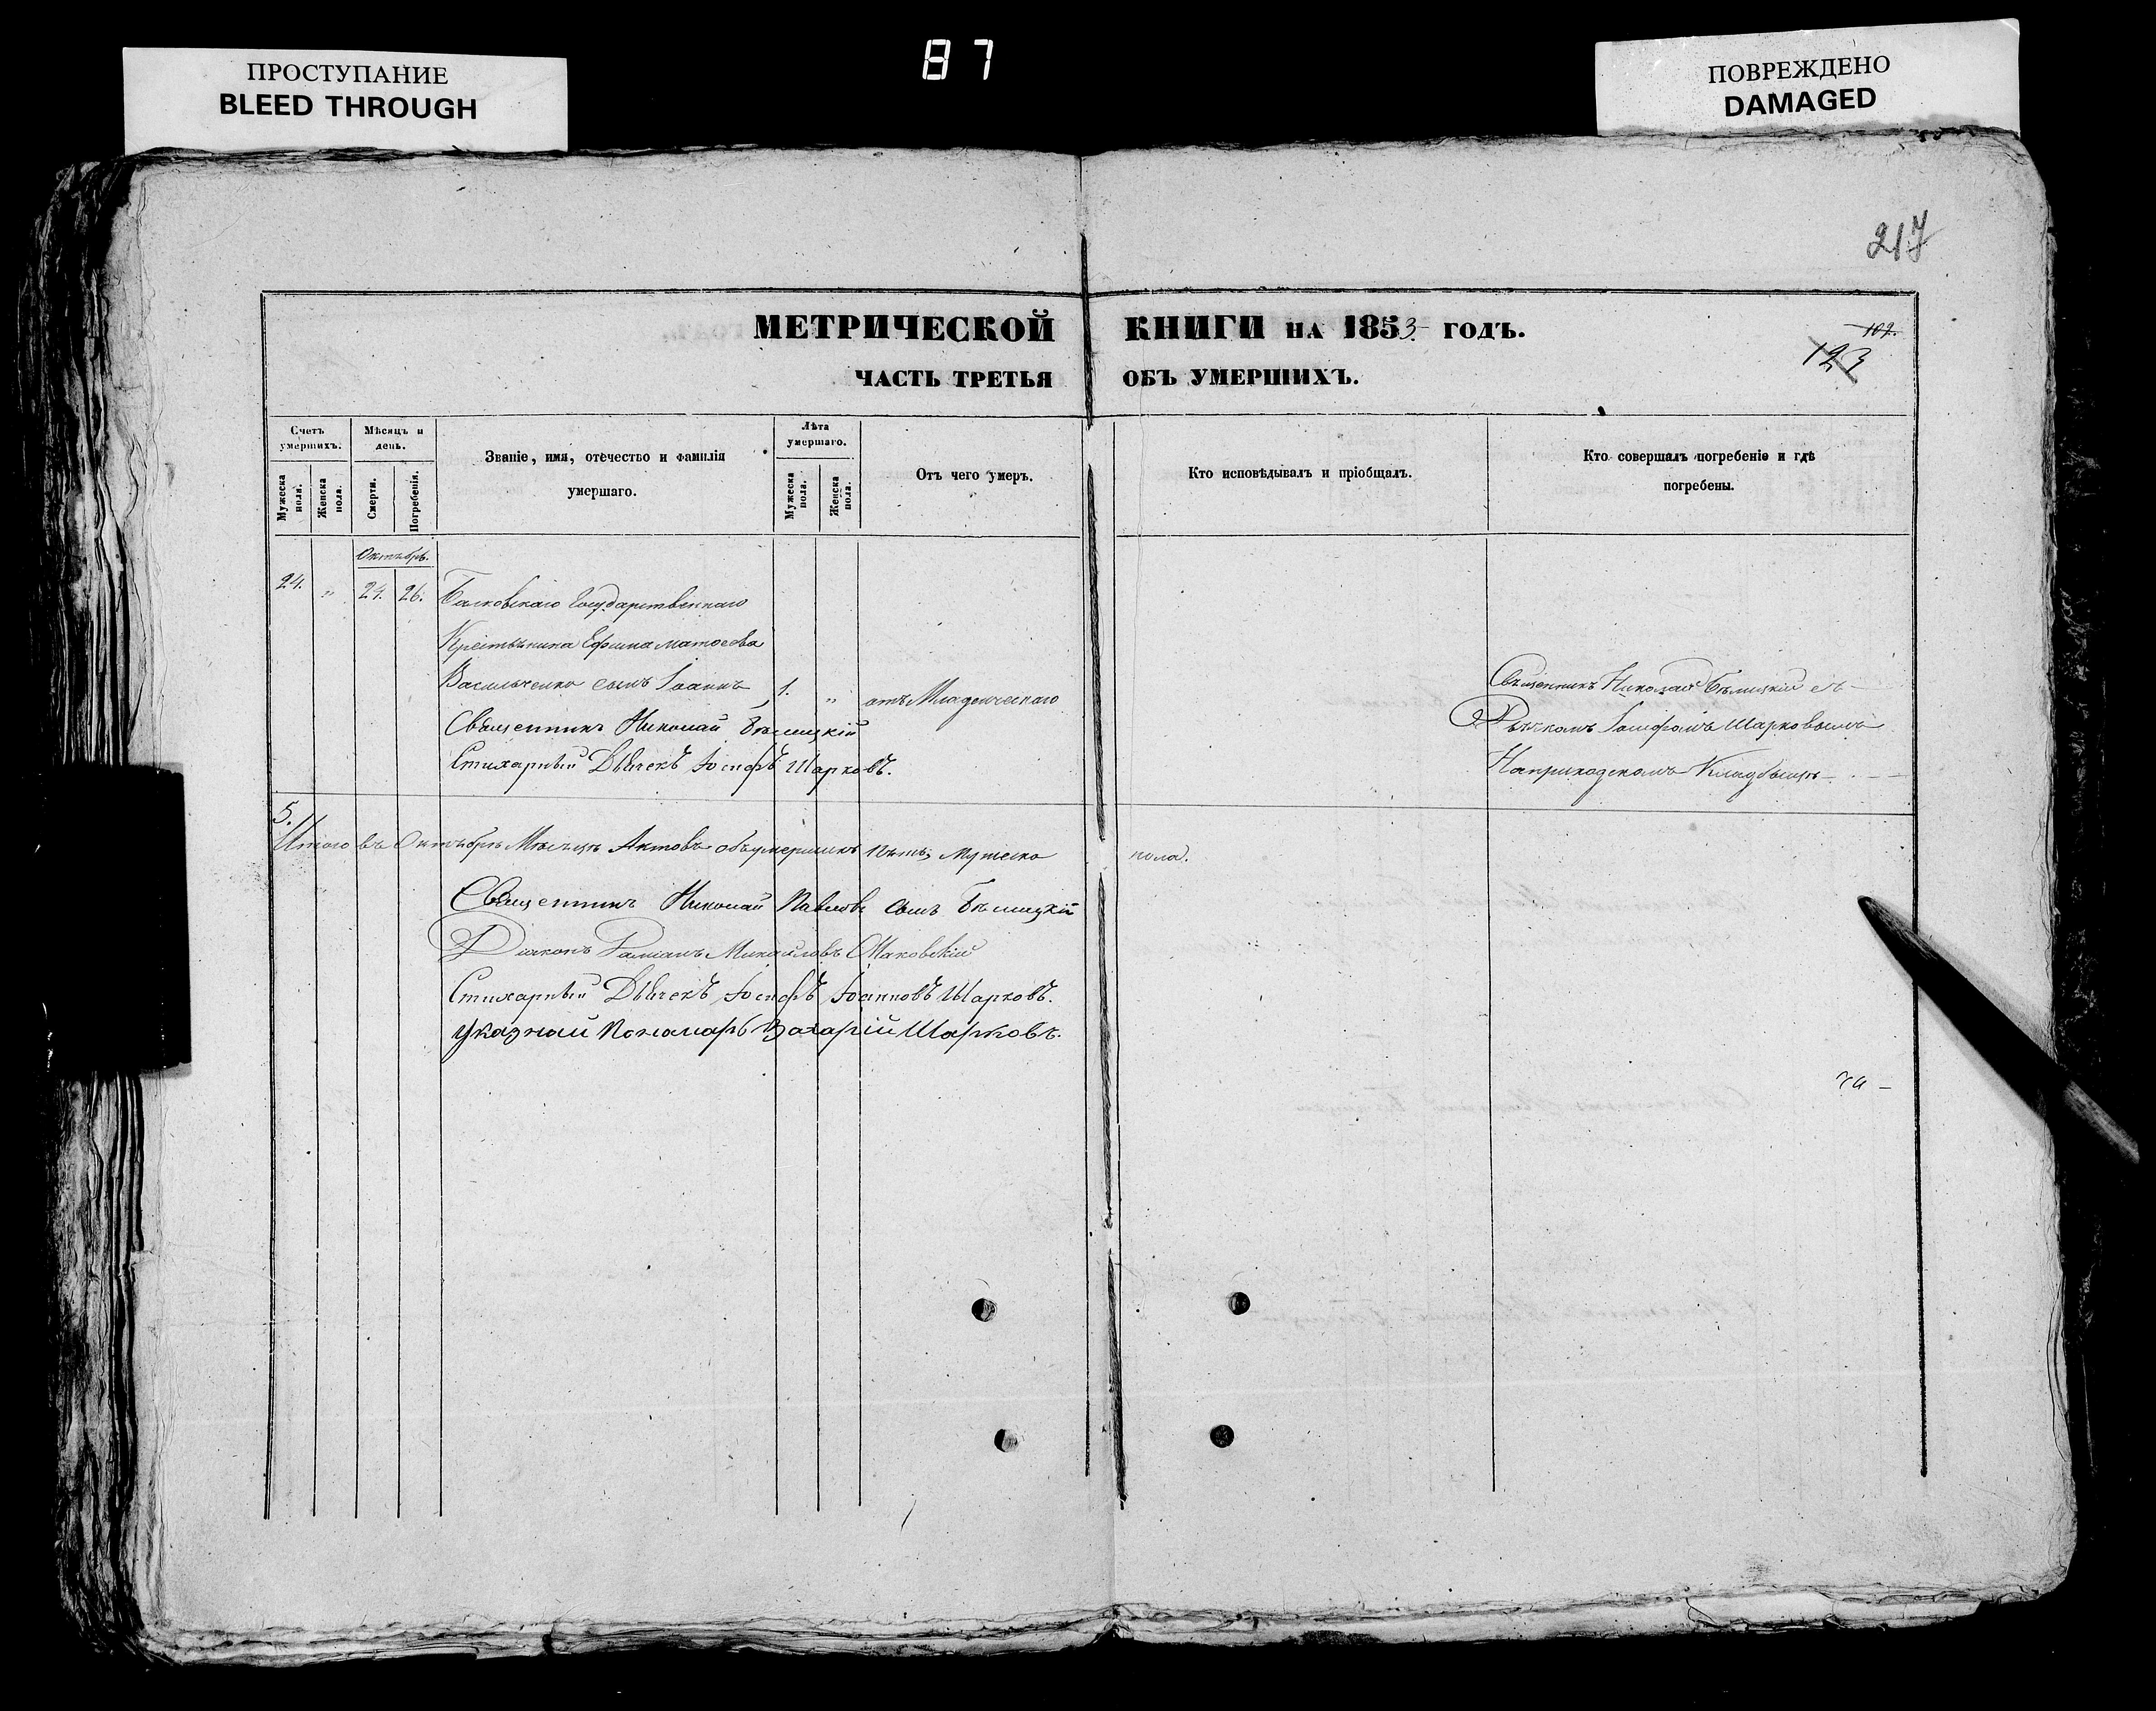 ПРОСТУПАНИЕ
BLEED THROUGH
87
ПОВРЕЖДЕНО
DAMAGED
217
МЕТРИЧЕСКОЙ КНИГИ НА 1853 ГОДЪ.
102.
123
ЧАСТЬ ТРЕТЬЯ ОБЪ УМЕРШИХЪ.
Счетъ умершихъ.
Мужеска пола.
Женска пола.
Мѣсяцъ и день.
Смерти.
Погребенія.
Званіе, имя, отечество и фамилія умершаго.
Лѣта умершаго.
Мужеска пола.
Женска пола.
Отъ чего умеръ.
Кто исповѣдывалъ и пріобщалъ.
Кто совершалъ погребеніе и гдѣ погребены.
Октябрь.
24. " 24. 26. Балковскаго Государственнаго
Крестьянина Ефима Матѳеева
Васильченко сынъ Іоаннъ 1. " отъ Младенческаго
Священникъ Николай Бѣлицкій съ
Дьячкомъ Іосифомъ Шарковымъ
На приходскомъ Кладбищѣ
Священникъ Николай Бѣлицкій
Стихарный Дьячекъ Іосифъ Шарковъ.
5.
Итого въ Октябрѣ Мѣсяцѣ Актовъ объ умершихъ пять, мужеска пола.
Священникъ Николай Павловъ сынъ Бѣлицкій
Діаконъ Михайловъ Маковскій
Стихарный Дьячекъ Іосифъ Іоанновъ Шарковъ.
Указный Пономарь Захарій Шарковъ.